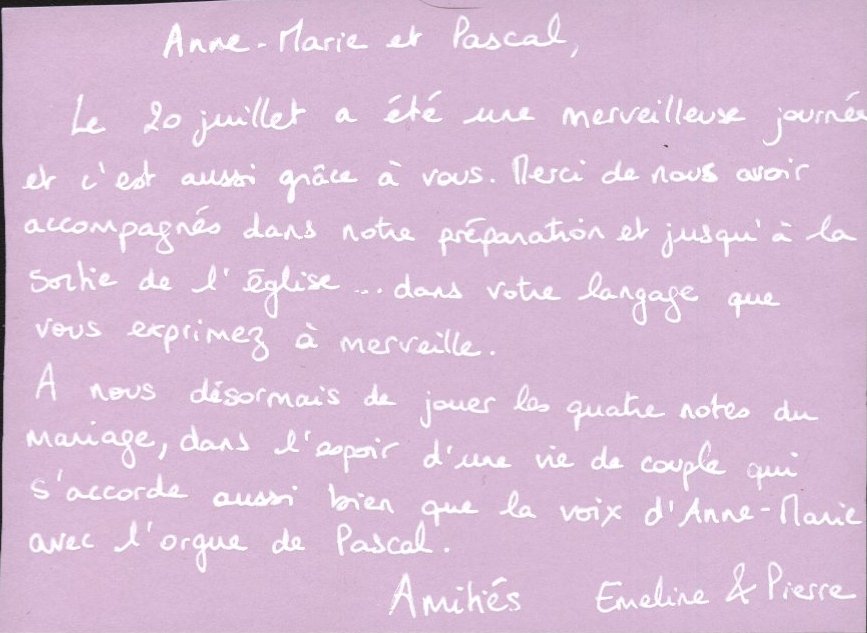 Anne-Marie et Pascal,
Le 20 juillet a été une merveilleuse journée
et c'est aussi grâce à vous. Merci de nous avoir
accompagnés dans notre préparation et jusqu'à la
sortie de l'église... dans votre langage que
vous exprimez à merveille.
A nous désormais de jouer les quatre notes du
mariage, dans l'espoir d'une vie de couple qui
s'accorde aussi bien que la voix d'Anne-Marie
avec l'orgue de Pascal.
Amitiés Emeline & Pierre